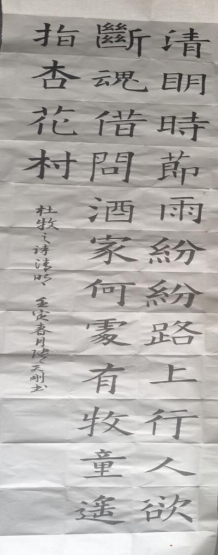 清明時節雨紛紛路上行人欲
斷魂借問酒家何處有牧童遥
指杏花村
杜牧之诗清明 壬寅春月 天刚书